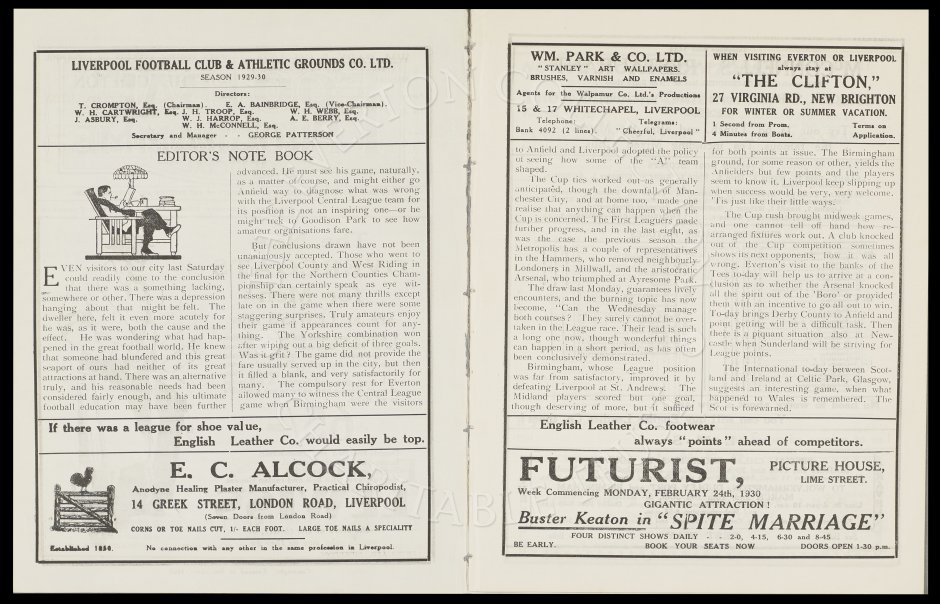 LIVERPOOL FOOTBALL CLUB & ATHLETIC GROUNDS CO. LTD.
SEASON 1929-30
Directors:
T. CROMPTON, Esq. (Chairman). E. A. BAINBRIDGE, Esq. (Vice-Chairman).
W. H. CARTWRIGHT, Esq. J. H. TROOP, Esq. W. H. WEBB, Esq.
J. ASBURY, Esq. W. J. HARROP, Esq. A. E. BERRY, Esq.
W. H. McCONNELL, Esq.
Secretary and Manager - - GEORGE PATTERSON
EDITOR'S NOTE BOOK
EVEN visitors to our city last Saturday
could readily come to the conclusion
that there was a something lacking,
somewhere or other. There was a depression
hanging about that might be felt. The
dweller here, felt it even more acutely for
he was, as it were, both the cause and the
effect. He was wondering what had hap-
pened in the great football world. He knew
that someone had blundered and this great
seaport of ours had neither of its great
attractions at hand. There was an alternative
truly, and his reasonable needs had been
considered fairly enough, and his ultimate
football education may have been further
advanced. He must see his game, naturally,
as a matter of course, and might either go
Anfield way to diagnose what was wrong
with the Liverpool Central League team for
its position is not an inspiring one—or he
might trek to Goodison Park to see how
amateur organisations fare.
But conclusions drawn have not been
unanimously accepted. Those who went to
see Liverpool County and West Riding in
the final for the Northern Counties Cham-
pionship can certainly speak as eye wit-
nesses. There were not many thrills except
late on in the game when there were some
staggering surprises. Truly amateurs enjoy
their game if appearances count for any-
thing. The Yorkshire combination won
after wiping out a big deficit of three goals.
Was it grit? The game did not provide the
fare usually served up in the city, but then
it filled a blank, and very satisfactorily for
many. The compulsory rest for Everton
allowed many to witness the Central League
game when Birmingham were the visitors
If there was a league for shoe value,
English Leather Co. would easily be top.
E. C. ALCOCK,
Anodyne Healing Plaster Manufacturer, Practical Chiropodist,
14 GREEK STREET, LONDON ROAD, LIVERPOOL
(Seven Doors from London Road)
CORNS OR TOE NAILS CUT, 1/- EACH FOOT. LARGE TOE NAILS A SPECIALITY
Established 1850. No connection with any other in the same profession in Liverpool.
WM. PARK & CO. LTD.
"STANLEY" ART WALLPAPERS.
BRUSHES, VARNISH AND ENAMELS
Agents for the Walpamur Co. Ltd.'s Productions
15 & 17 WHITECHAPEL, LIVERPOOL
Telephone: Telegrams:
Bank 4092 (2 lines). "Cheerful, Liverpool"
WHEN VISITING EVERTON OR LIVERPOOL
always stay at
"THE CLIFTON,"
27 VIRGINIA RD., NEW BRIGHTON
FOR WINTER OR SUMMER VACATION.
1 Second from Prom. Terms on
4 Minutes from Boats. Application.
to Anfield and Liverpool adopted the policy
of seeing how some of the "A" team
shaped.
The Cup ties worked out as generally
anticipated, though the downfall of Man-
chester City, and at home too, made one
realise that anything can happen when the
Cup is concerned. The First Leaguers made
further progress, and in the last eight, as
was the case the previous season the
Metropolis has a couple of representatives
in the Hammers, who removed neighbourly
Londoners in Millwall, and the aristocratic
Arsenal, who triumphed at Ayresome Park.
The draw last Monday, guarantees lively
encounters, and the burning topic has now
become, "Can the Wednesday manage
both courses? They surely cannot be over-
taken in the League race. Their lead is such
a long one now, though wonderful things
can happen in a short period, as has often
been conclusively demonstrated.
Birmingham, whose League position
was far from satisfactory, improved it by
defeating Liverpool at St. Andrews. The
Midland players scored but one goal,
though deserving of more, but it sufficed
for both points at issue. The Birmingham
ground, for some reason or other, yields the
Anfielders but few points and the players
seem to know it. Liverpool keep slipping up
when success would be very, very welcome.
'Tis just like their little ways.
The Cup rush brought midweek games,
and one cannot tell off hand how re-
arranged fixtures work out. A club knocked
out of the Cup competition sometimes
shows its next opponents, how it was all
wrong. Everton's visit to the banks of the
Tees to-day will help us to arrive at a con-
clusion as to whether the Arsenal knocked
all the spirit out of the 'Boro' or provided
them with an incentive to go all out to win.
To-day brings Derby County to Anfield and
point getting will be a difficult task. Then
there is a piquant situation also at New-
castle when Sunderland will be striving for
League points.
The International to-day between Scot-
land and Ireland at Celtic Park, Glasgow,
suggests an interesting game, when what
happened to Wales is remembered. The
Scot is forewarned.
English Leather Co. footwear
always "points" ahead of competitors.
FUTURIST, PICTURE HOUSE,
LIME STREET.
Week Commencing MONDAY, FEBRUARY 24th, 1930
GIGANTIC ATTRACTION!
Buster Keaton in "SPITE MARRIAGE"
FOUR DISTINCT SHOWS DAILY - - 2-0, 4-15, 6-30 and 8-45
BE EARLY. BOOK YOUR SEATS NOW DOORS OPEN 1-30 p.m.